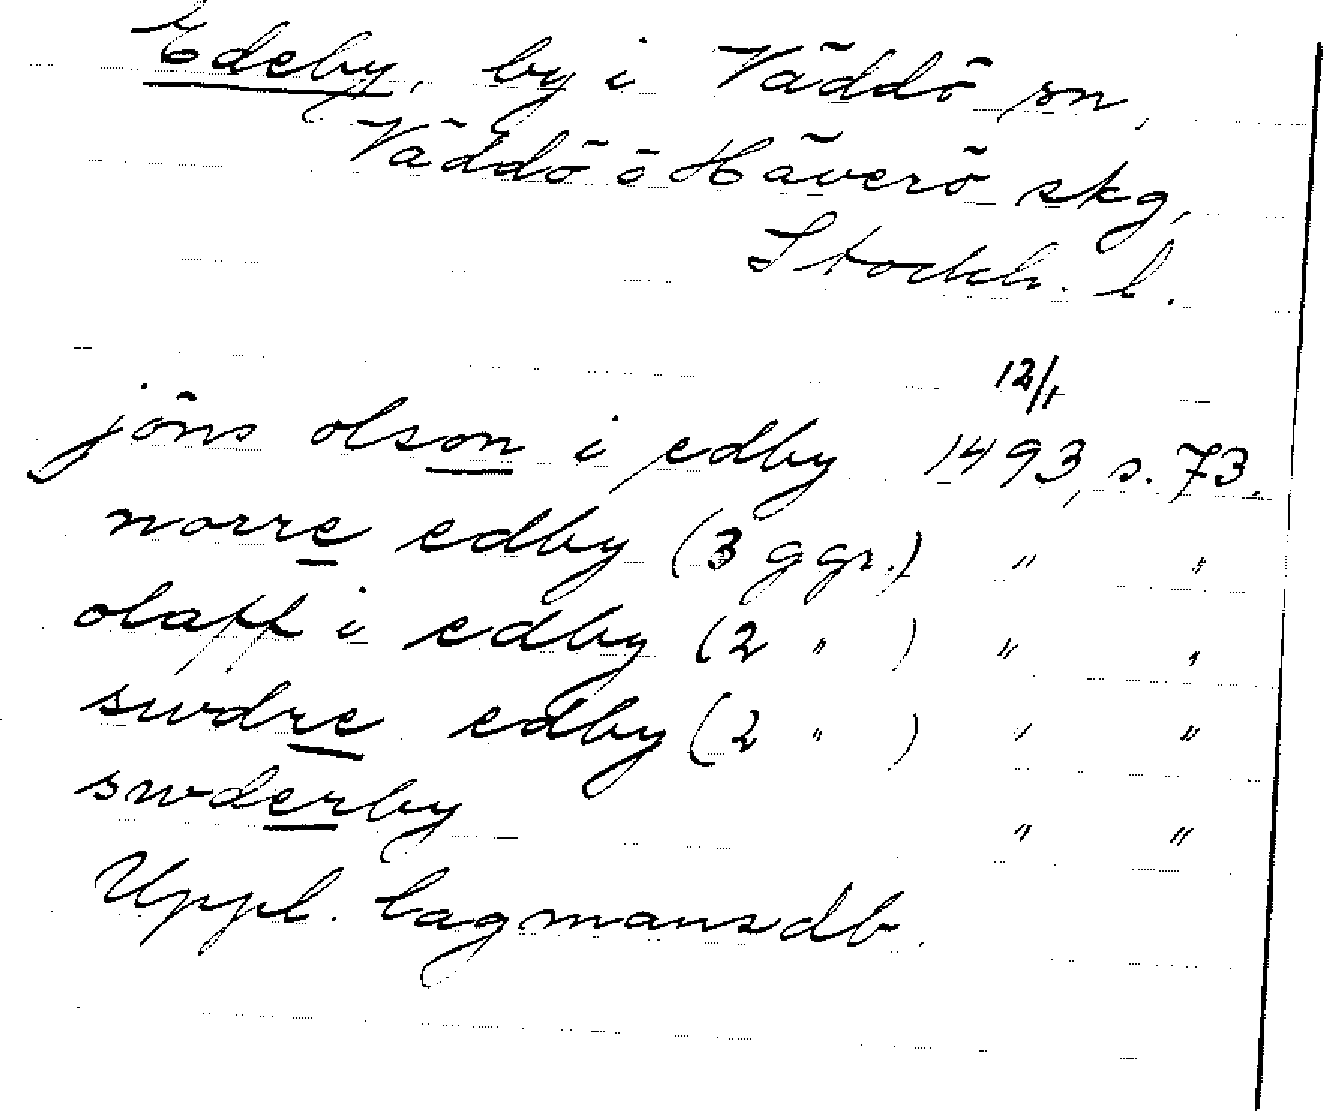 Edeby, by i Väddö sn,
Väddö o Häverö skg,
Stockh. l.
12/1
jöns olson i edby 1493, s. 73.
norre edby (3 ggr.) " "
olaff i edby (2 " ) " "
swdre edby (2 " ) " "
swderby " "
Uppl. lagmansdb.